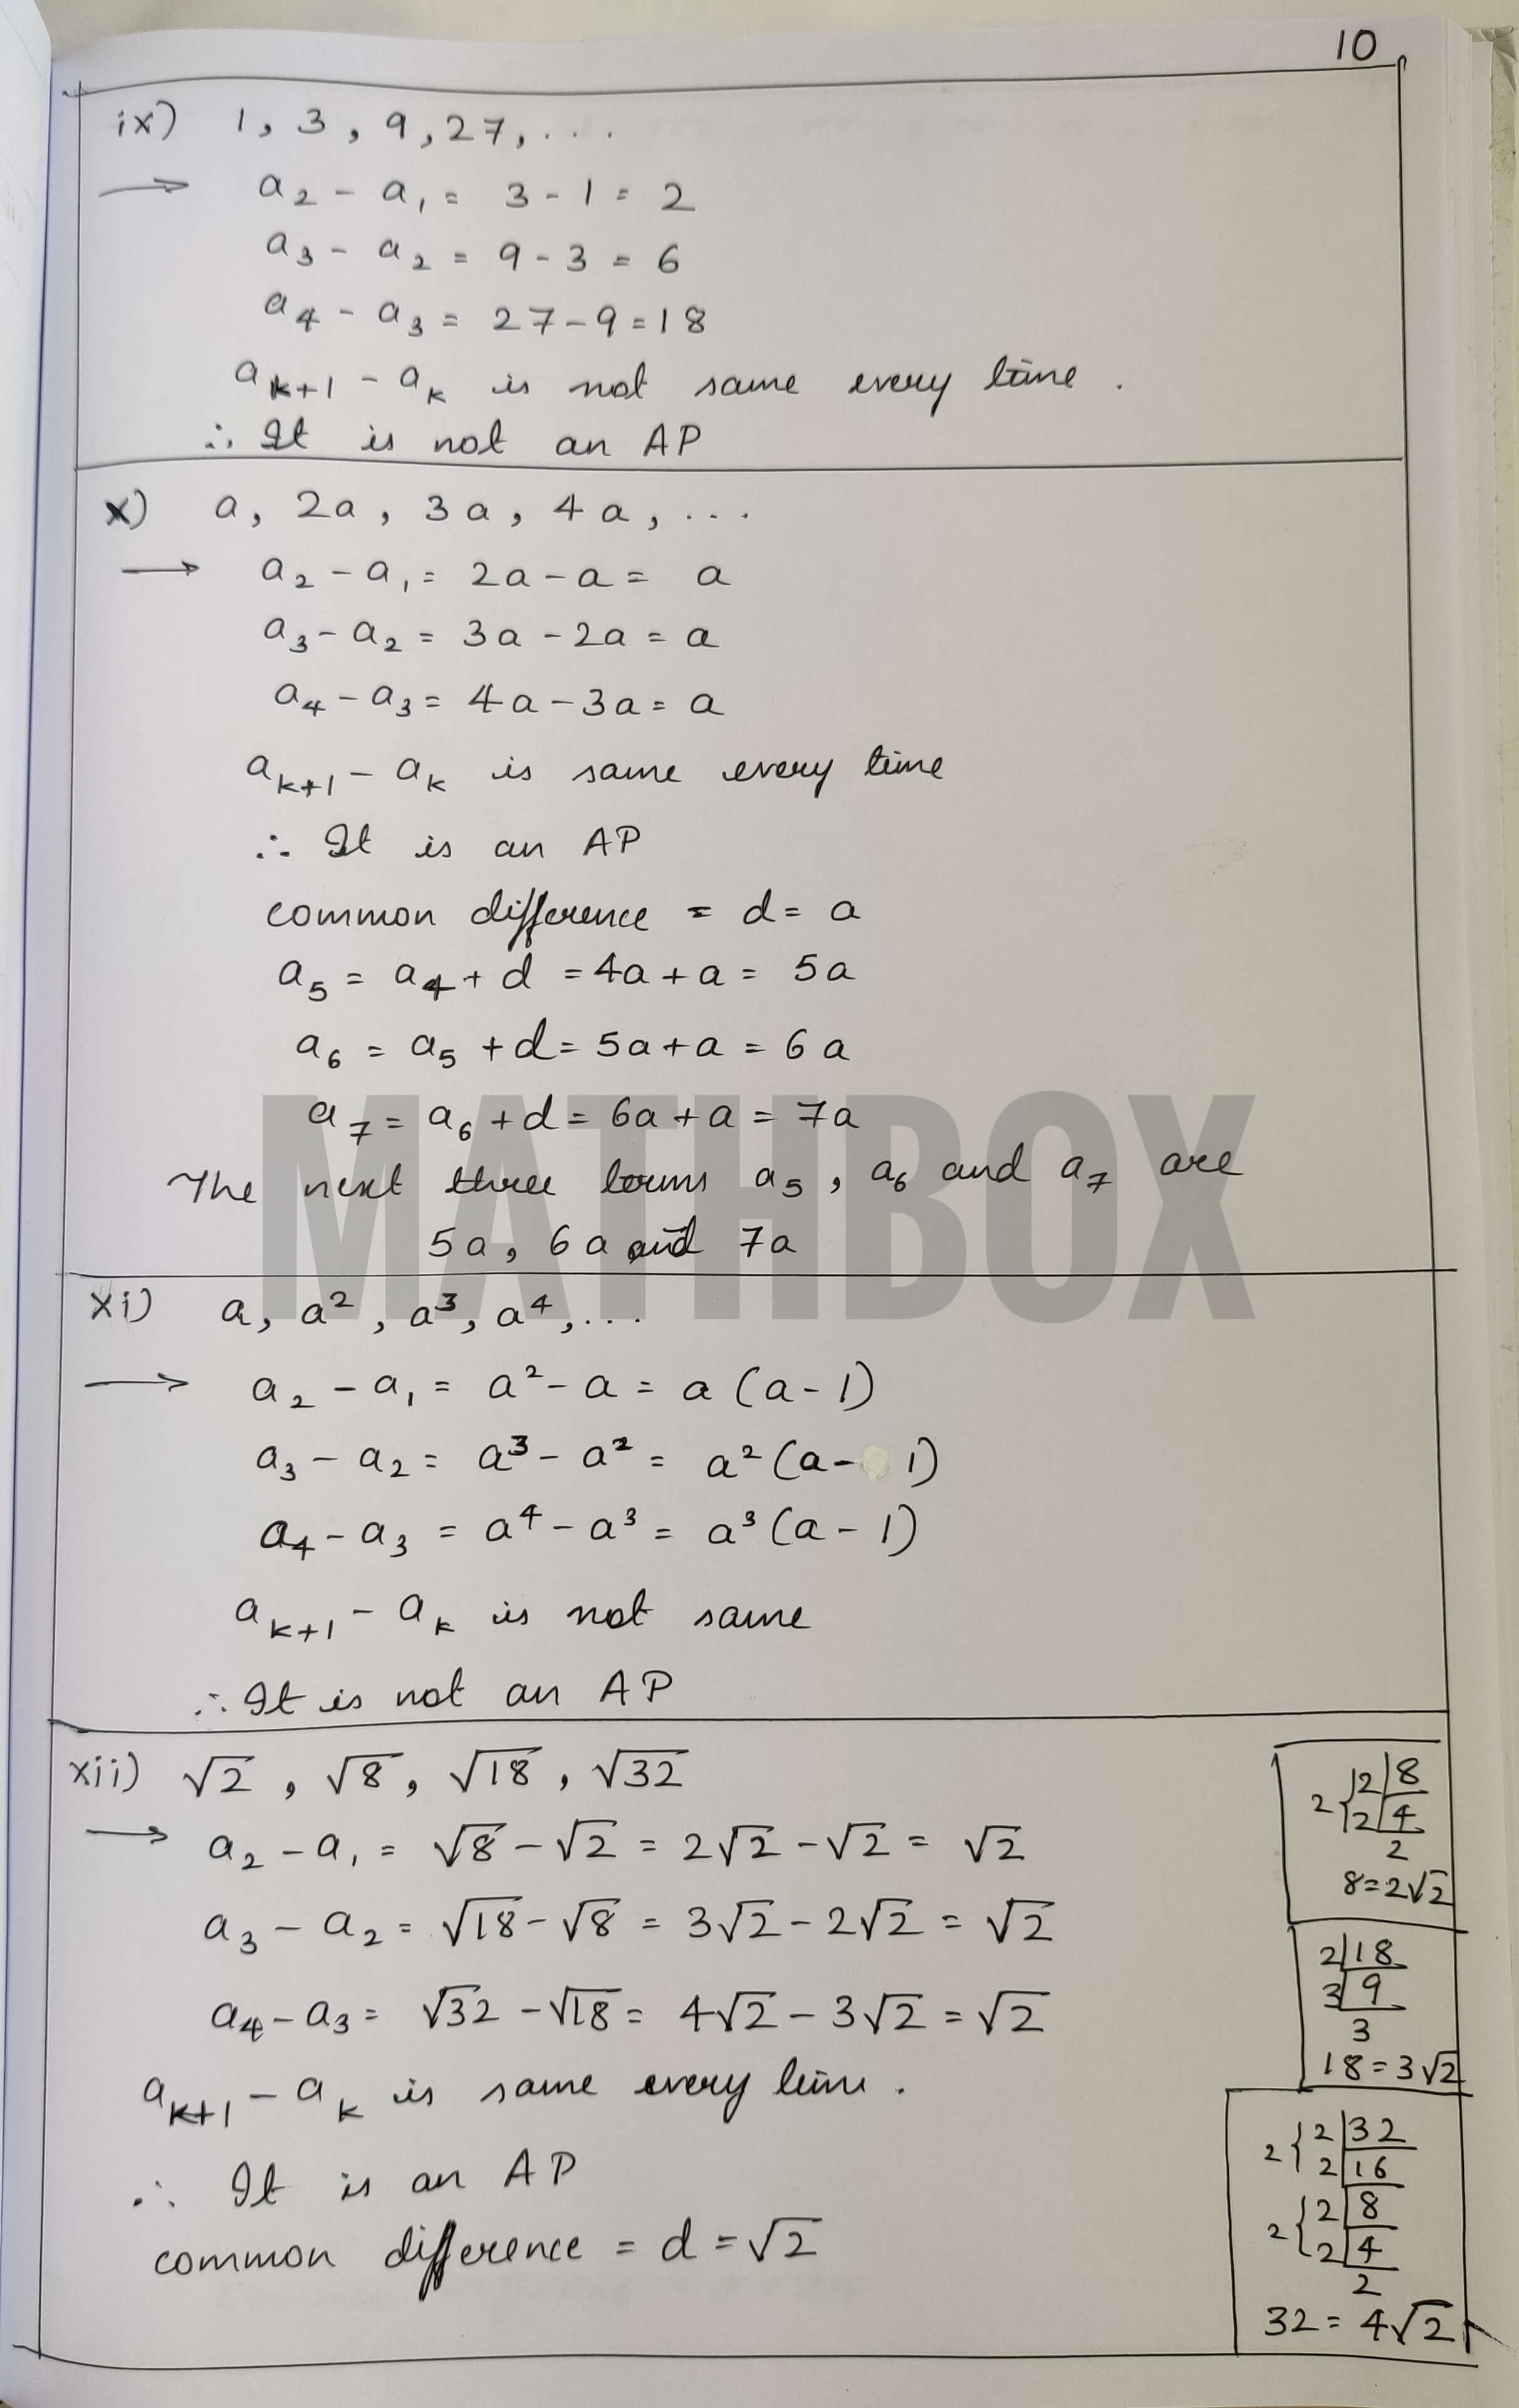 10
ix) 1, 3, 9, 27, ...
→ a₂ - a₁ = 3 - 1 = 2
a₃ - a₂ = 9 - 3 = 6
a₄ - a₃ = 27 - 9 = 18
aₖ₊₁ - aₖ is not same every time.
∴ It is not an AP
x) a, 2a, 3a, 4a, ...
→ a₂ - a₁ = 2a - a = a
a₃ - a₂ = 3a - 2a = a
a₄ - a₃ = 4a - 3a = a
aₖ₊₁ - aₖ is same every time
∴ It is an AP
common difference = d = a
a₅ = a₄ + d = 4a + a = 5a
a₆ = a₅ + d = 5a + a = 6a
a₇ = a₆ + d = 6a + a = 7a
The next three terms a₅, a₆ and a₇ are
5a, 6a and 7a
MATHBOX
xi) a, a², a³, a⁴, ...
→ a₂ - a₁ = a² - a = a (a - 1)
a₃ - a₂ = a³ - a² = a² (a - 1)
a₄ - a₃ = a⁴ - a³ = a³ (a - 1)
aₖ₊₁ - aₖ is not same
∴ It is not an AP
xii) √2, √8, √18, √32
→ a₂ - a₁ = √8 - √2 = 2√2 - √2 = √2
a₃ - a₂ = √18 - √8 = 3√2 - 2√2 = √2
a₄ - a₃ = √32 - √18 = 4√2 - 3√2 = √2
aₖ₊₁ - aₖ is same every time.
∴ It is an AP
common difference = d = √2
2 { 2|8
2|4
2
8 = 2√2
2|18
3|9
3
18 = 3√2
2 { 2|32
2|16
2 { 2|8
2|4
2
32 = 4√2